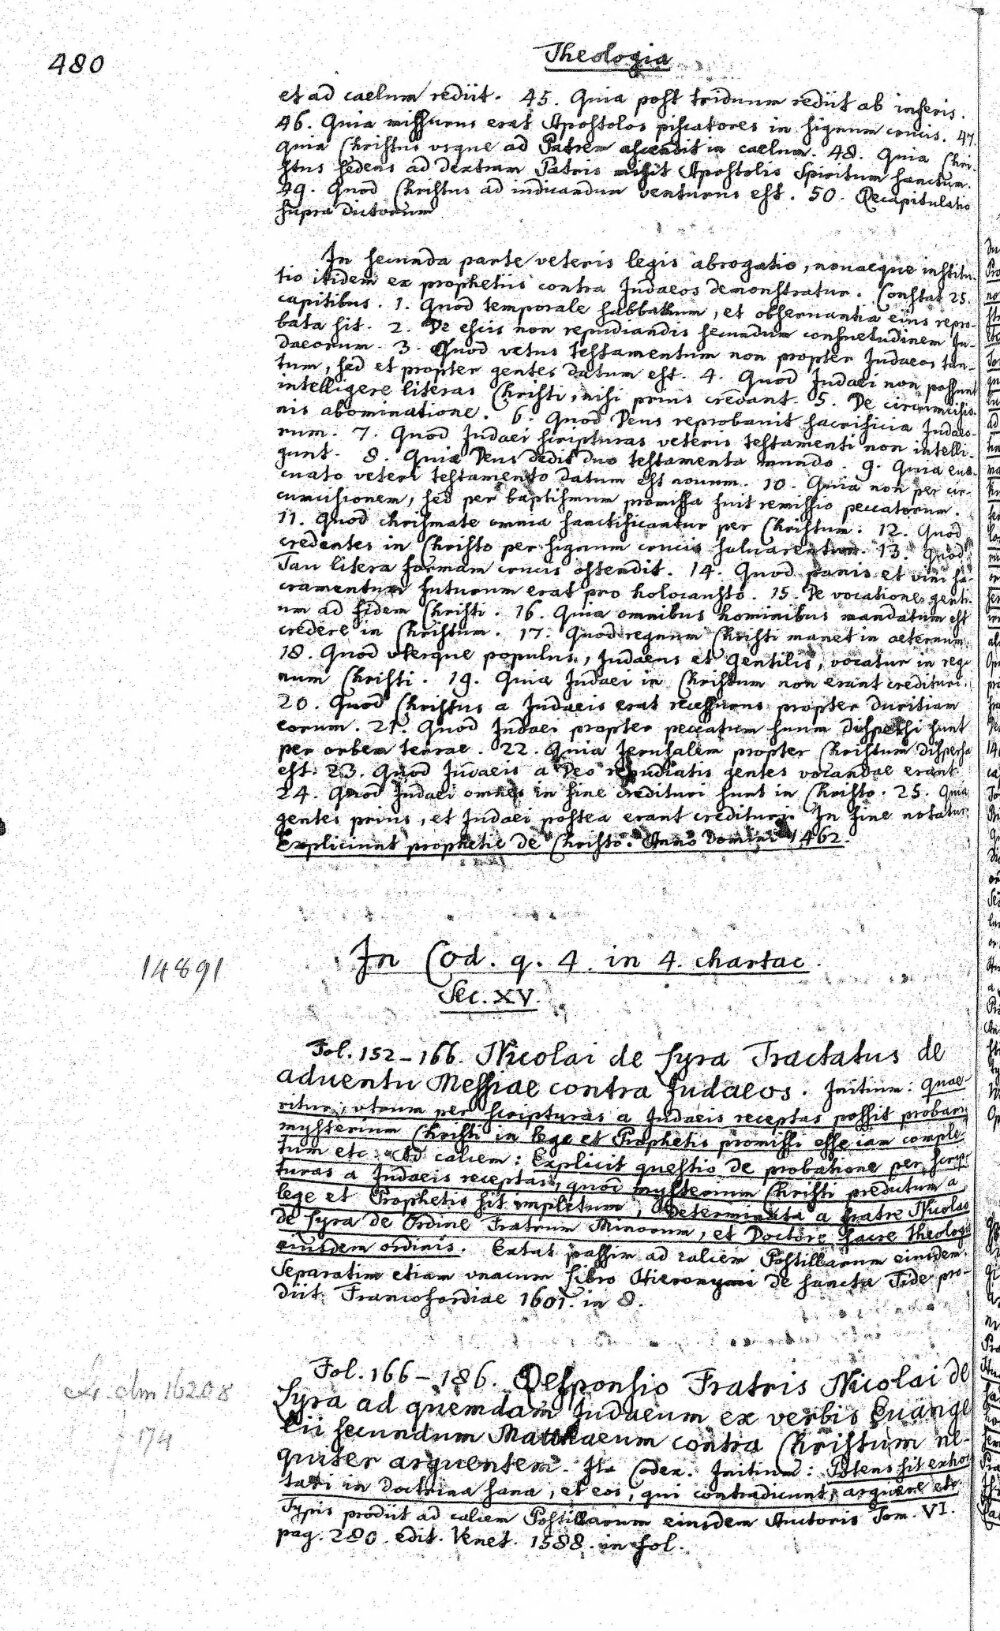 480
Theologia
et ad caelum rediit. 45. Quia post triduum rediit ab inferis.
46. Quia missurus erat Apostolos piscatores in signum crucis. 47.
Quia Christus usque ad Patrem ascendit in caelum. 48. Quia Chri-
stus sedens ad dextram Patris misit Apostolis Spiritum sanctum.
49. Quod Christus ad iudicandum venturus est. 50. Recapitulatio
supra dictorum
In secunda parte veteris legis abrogatio, nouaeque institu-
tio itidem ex prophetiis contra Judaeos demonstratur. Constat 25.
capitibus. 1. Quod temporale sabbathum, et obseruantia eius repro-
bata sit. 2. De escis non repudiandis secundum consuetudinem Ju-
daeorum. 3. Quod vetus testamentum non propter Judaeos tan-
tum, sed et propter gentes datum est. 4. Quod Judaei non possunt
intelligere literas Christi, nisi prius credant. 5. De circumcisio-
nis abominatione. 6. Quod Deus reprobauit sacrificia Judaeo-
rum. 7. Quod Judaei scripturas veteris testamenti non intelli-
gunt. 8. Quia Deus dedit duo testamenta mundo. 9. Quia eua-
cuato veteri testamento datum est nouum. 10. Quia non per cir-
cumcisionem, sed per baptismum promissa fuit remissio peccatorum.
11. Quod chrismate omnia sanctificantur per Christum. 12. Quod
credentes in Christo per signum crucis saluarentur. 13. Quod
Tau litera formam crucis ostendit. 14. Quod panis et vini sa-
cramentum futurum erat pro holocausto. 15. De vocatione genti-
um ad fidem Christi. 16. Quia omnibus hominibus mandatum est
credere in Christum. 17. Quod regnum Christi manet in aeternum.
18. Quod vterque populus, Judaeus et Gentilis, vocatur in reg-
num Christi. 19. Quia Judaei in Christum non erant credituri.
20. Quod Christus a Judaeis erat recessurus propter duritiam
eorum. 21. Quod Judaei propter peccatum suum dispersi sunt
per orbem terrae. 22. Quia Jerusalem propter Christum dispersa
est. 23. Quod Judaeis a Deo repudiatis gentes vocandae erant.
24. Quod Judaei omnes in fine credituri sunt in Christo. 25. Quia
gentes prius, et Judaei postea erant credituri. In fine notatur:
Expliciunt prophetie de Christo. Anno Domini 1462.
14891
In Cod. q. 4. in 4. chartac.
Sec. XV.
Fol. 152-166. Nicolai de Lyra Tractatus de
aduentu Messiae contra Judaeos. Initium: Quae-
ritur, vtrum per scripturas a Judaeis receptas possit probari
mysterium Christi in lege et Prophetis promissi esse iam comple-
tum etc. Ad calcem: Explicit questio de probatione per scrip-
turas a Judaeis receptas, quod mysterium Christi predictum a
lege et Prophetis sit impletum, determinata a fratre Nicolao
de Lyra de Ordine Fratrum Minorum, et Doctore sacre theologie
eiusdem ordinis. Extat passim ad calcem Postillarum eiusdem.
Separatim etiam vnacum libro Hieronymi de sancta Fide pro-
diit Francofordiae 1601. in 8.
clm 16208
174
Fol. 166-186. Responsio Fratris Nicolai de
Lyra ad quemdam Judaeum ex verbis Euange-
lii secundum Matthaeum contra Christum ne-
quiter arguentem. Ita Codex. Initium: Potens sit exhor-
tari in doctrina sana, et eos, qui contradicunt, arguere etc.
Typis prodiit ad calcem Postillarum eiusdem Auctoris Tom. VI.
pag. 280. edit. Venet. 1588. in fol.